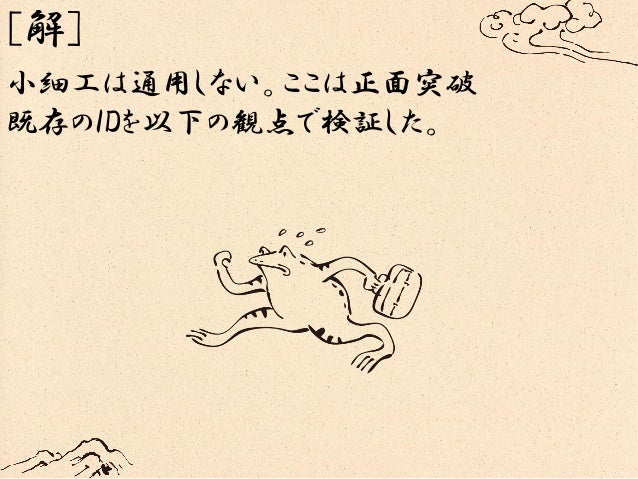 [解]
小細工は通用しない。ここは正面突破
既存のIDを以下の観点で検証した。